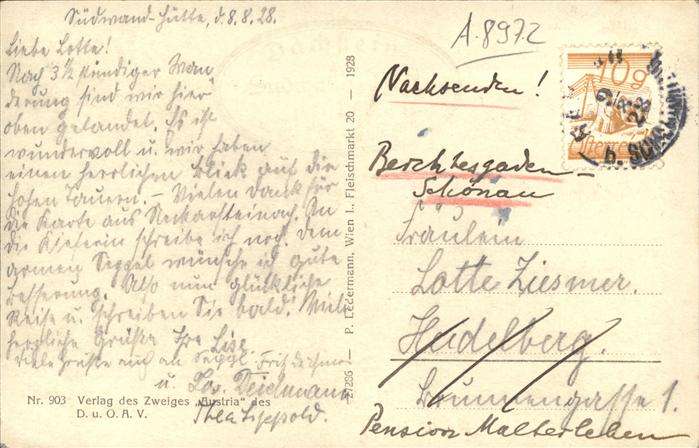 Südwand-Hütte, d. 8.8.28.
Liebe Lotte!
Nach 3½ stündiger Wan-
derung sind wir hier
oben gelandet. Es ist
wundervoll u. wir haben
einen herrlichen Blick auf die
hohen Tauern. – Vielen Dank für
die Karte aus Neckarsteinach. An
die schreibe ich noch. Dem
armen Seppel wünsche ich gute
Besserung. Also nun glückliche
Reise u. schreiben Sie bald! Mit
herzlichen Grüßen Ihre Lise
viele Grüße auch an Seppl.
u.
Nr. 903 Verlag des Zweiges "Austria" des
D. u. Ö. A. V.
27295 — P. Ledermann, Wien I., Fleischmarkt 20 — 1928
A.8972
Nachsenden!
10g
Berchtesgaden-
Schönau
Fräulein
Lotte Ziesmer.
Heidelberg.
Brunnengasse 1.
Pension Malterlehen